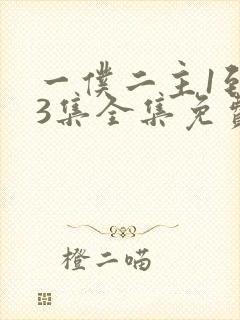 一僕二主1到
3集全集免費
橙二喵